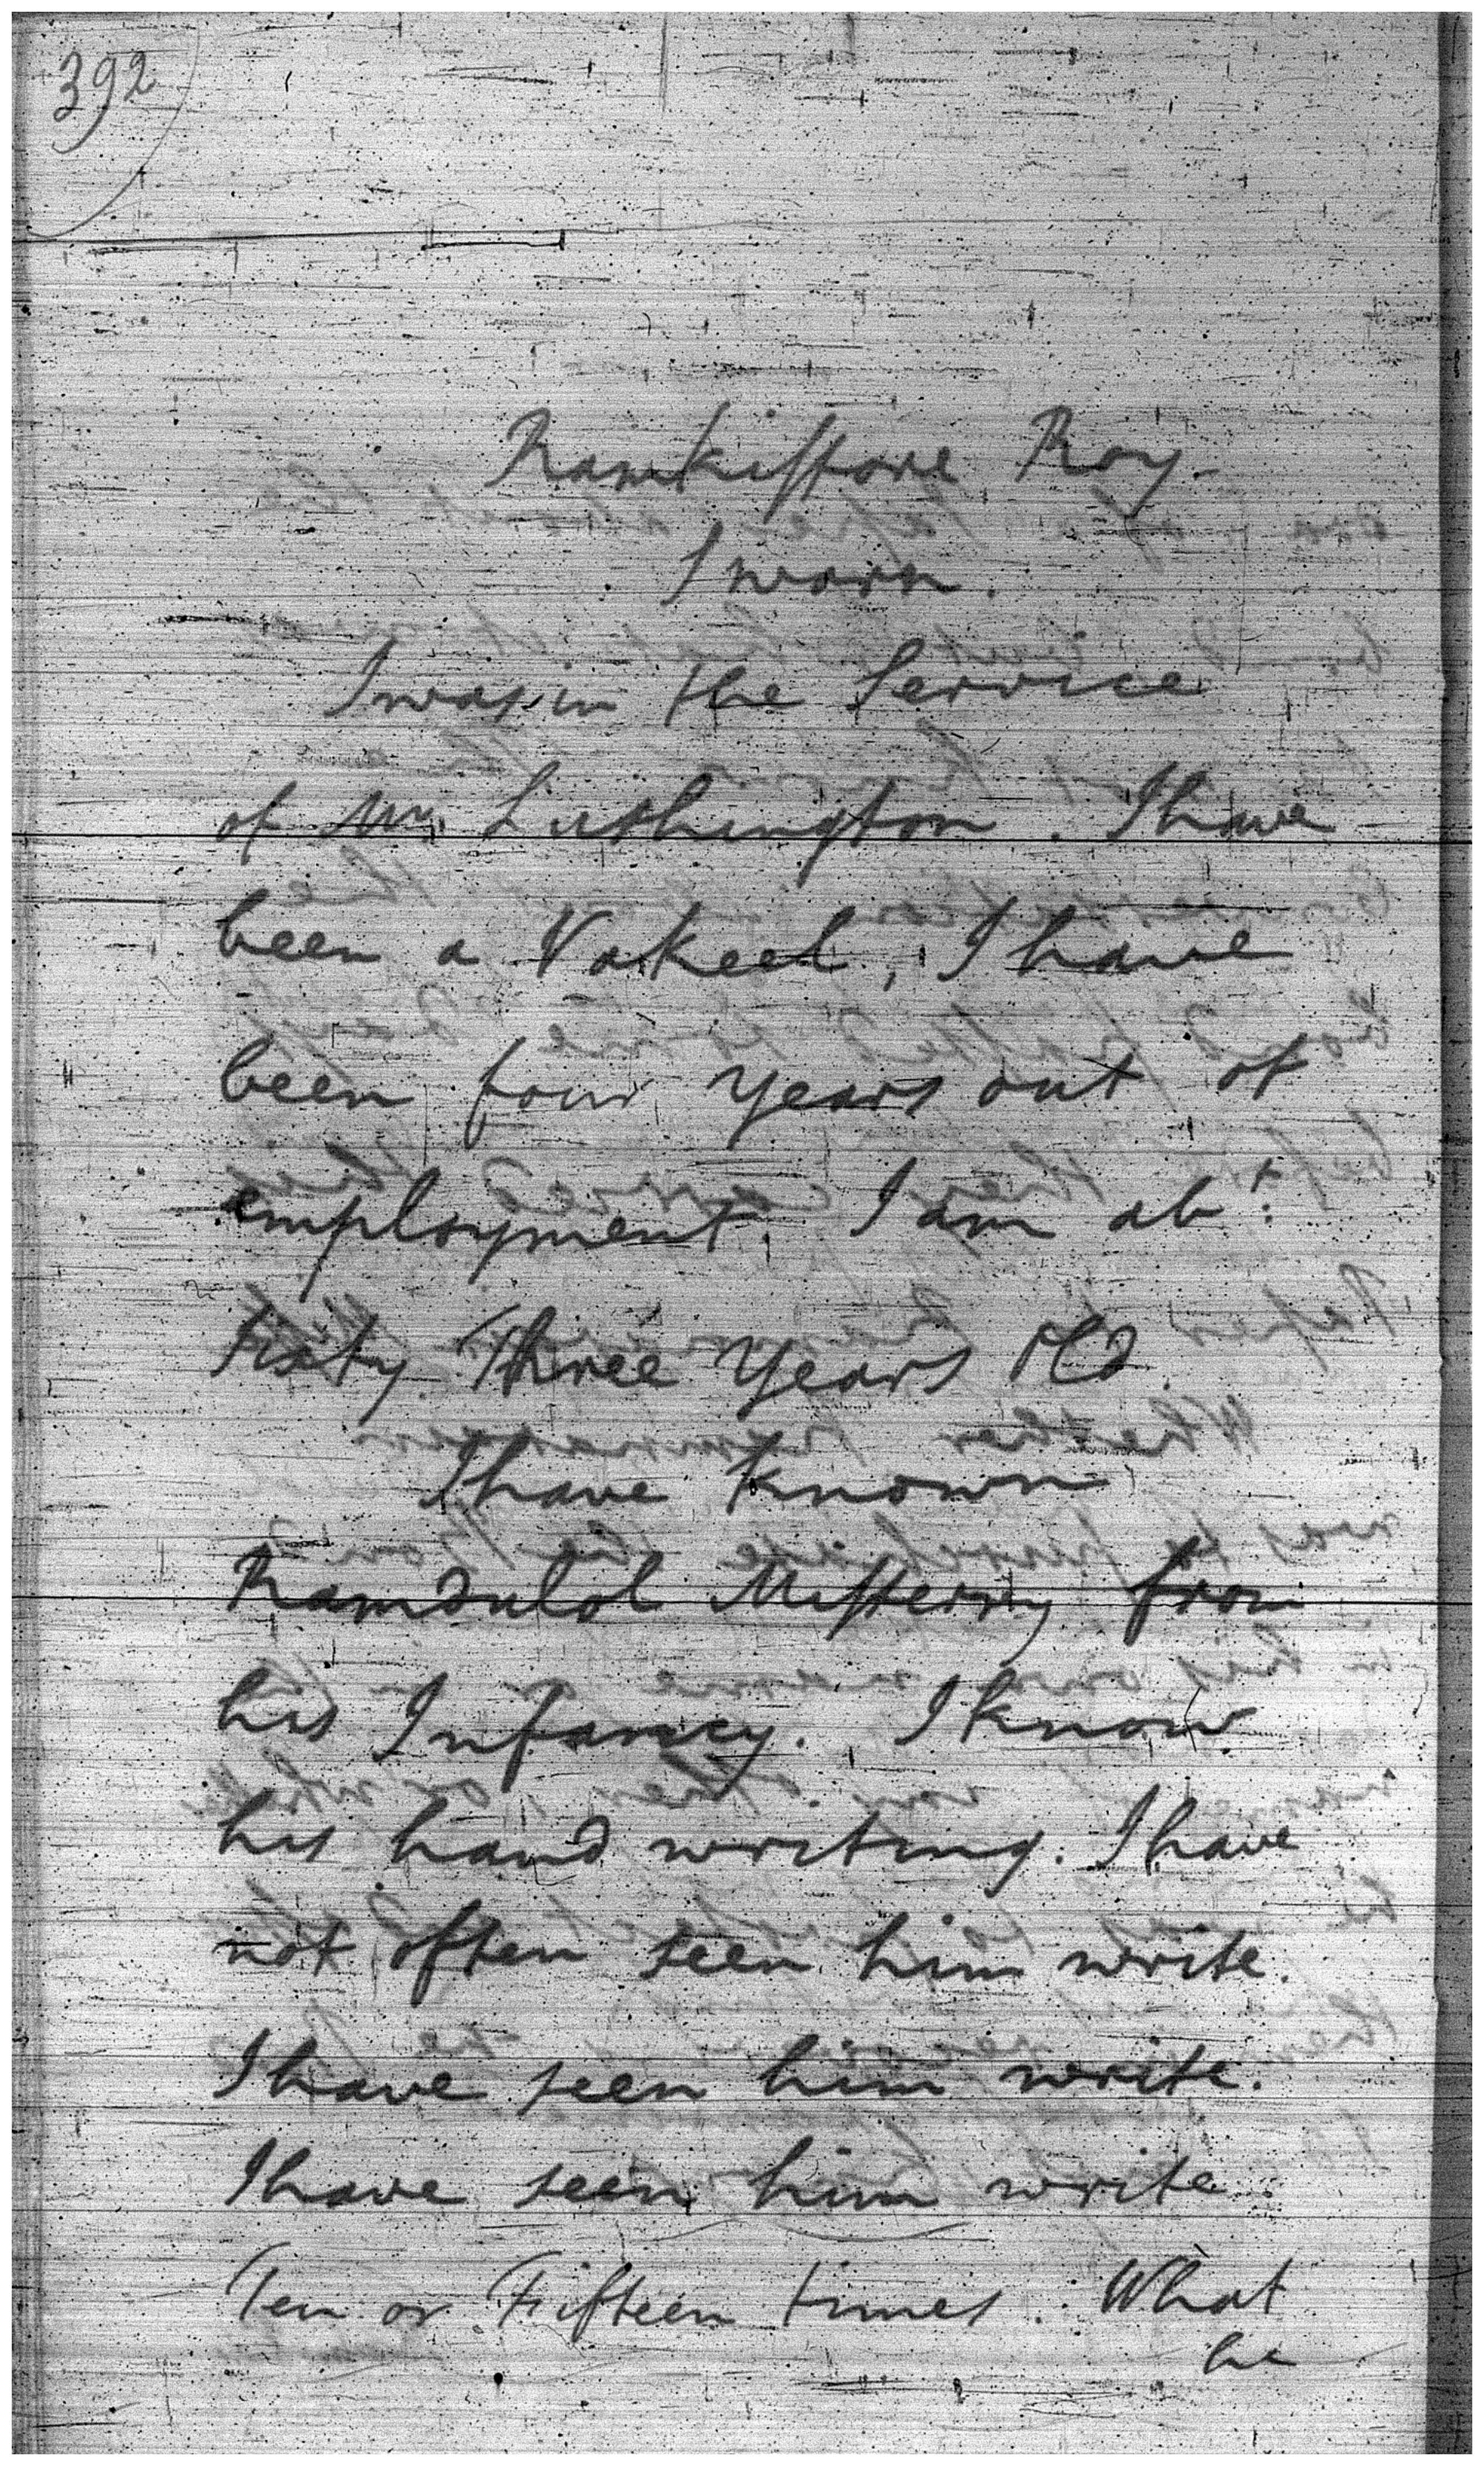 392
Ramkissore Roy.
Sworn.
I was in the Service
of Mr. Lushington. I have
been a Vakeel, I have
been four years out of
employment. I am abt.
Sixty Three Years Old.
I have known
Ramdulol Misterry from
his Infancy. I know
his hand writing. I have
not often seen him write.
I have seen him write.
I have seen him write
Ten or Fifteen times. What
he